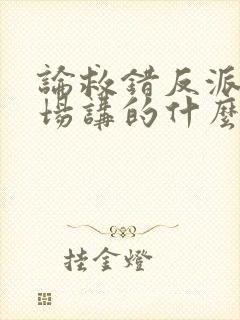 論救錯反派
場講的什麼
挂金燈